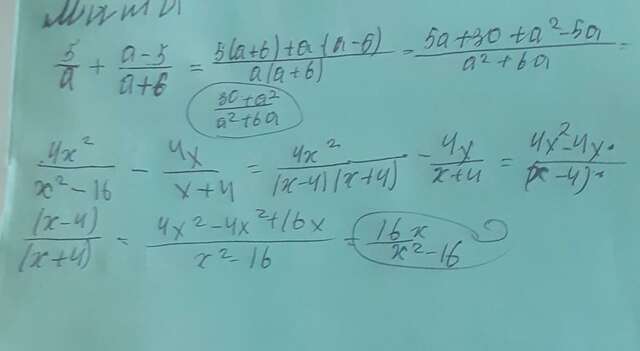 5/a + a-5/a+6 = 5(a+6)+a·(a-5)/a(a+6) = 5a+30+a²-5a/a²+6a =
30+a²/a²+6a
4x²/x²-16 - 4x/x+4 = 4x²/(x-4)(x+4) - 4y/x+4 = 4x²-4y·/(x-4)·
(x-4)/(x+4) = 4x²-4x²+16x/x²-16 = 16x/x²-16